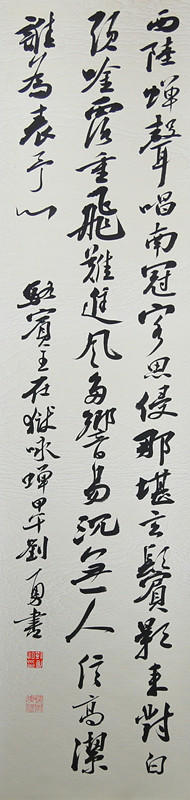 西陸蟬聲唱南冠客思侵那堪玄鬢影来對白
頭吟露重飛難進風多響易沉無人信高潔
誰為表予心
駱賓王在獄咏蟬甲午劉勇書